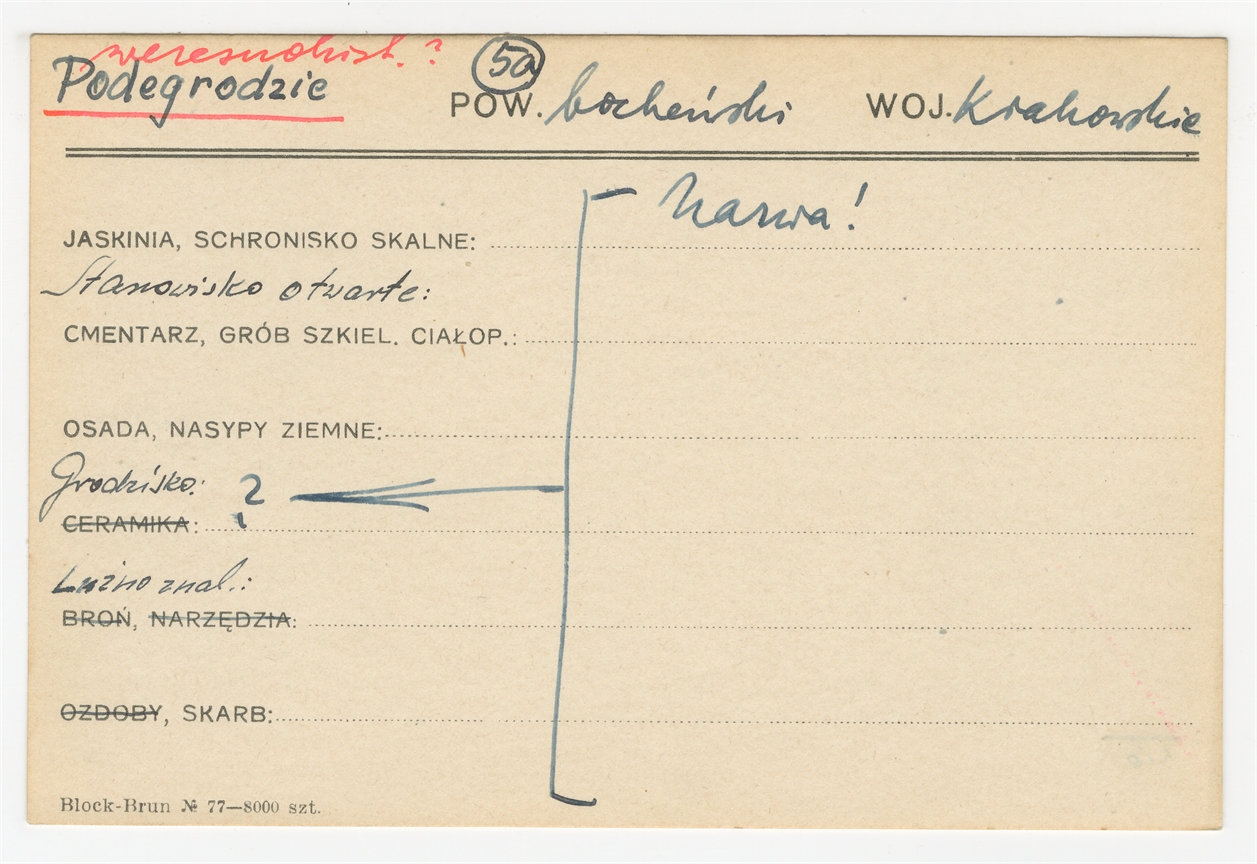 wczesnohist. ?
Podegrodzie 5a POW. bocheński WOJ. Krakowskie
Nazwa!
JASKINIA, SCHRONISKO SKALNE:
Stanowisko otwarte:
CMENTARZ, GRÓB SZKIEL. CIAŁOP.:
OSADA, NASYPY ZIEMNE:
Grodzisko: ?
CERAMIKA:
Luźno znal.:
BROŃ, NARZĘDZIA:
OZDOBY, SKARB:
Block-Brun № 77—8000 szt.